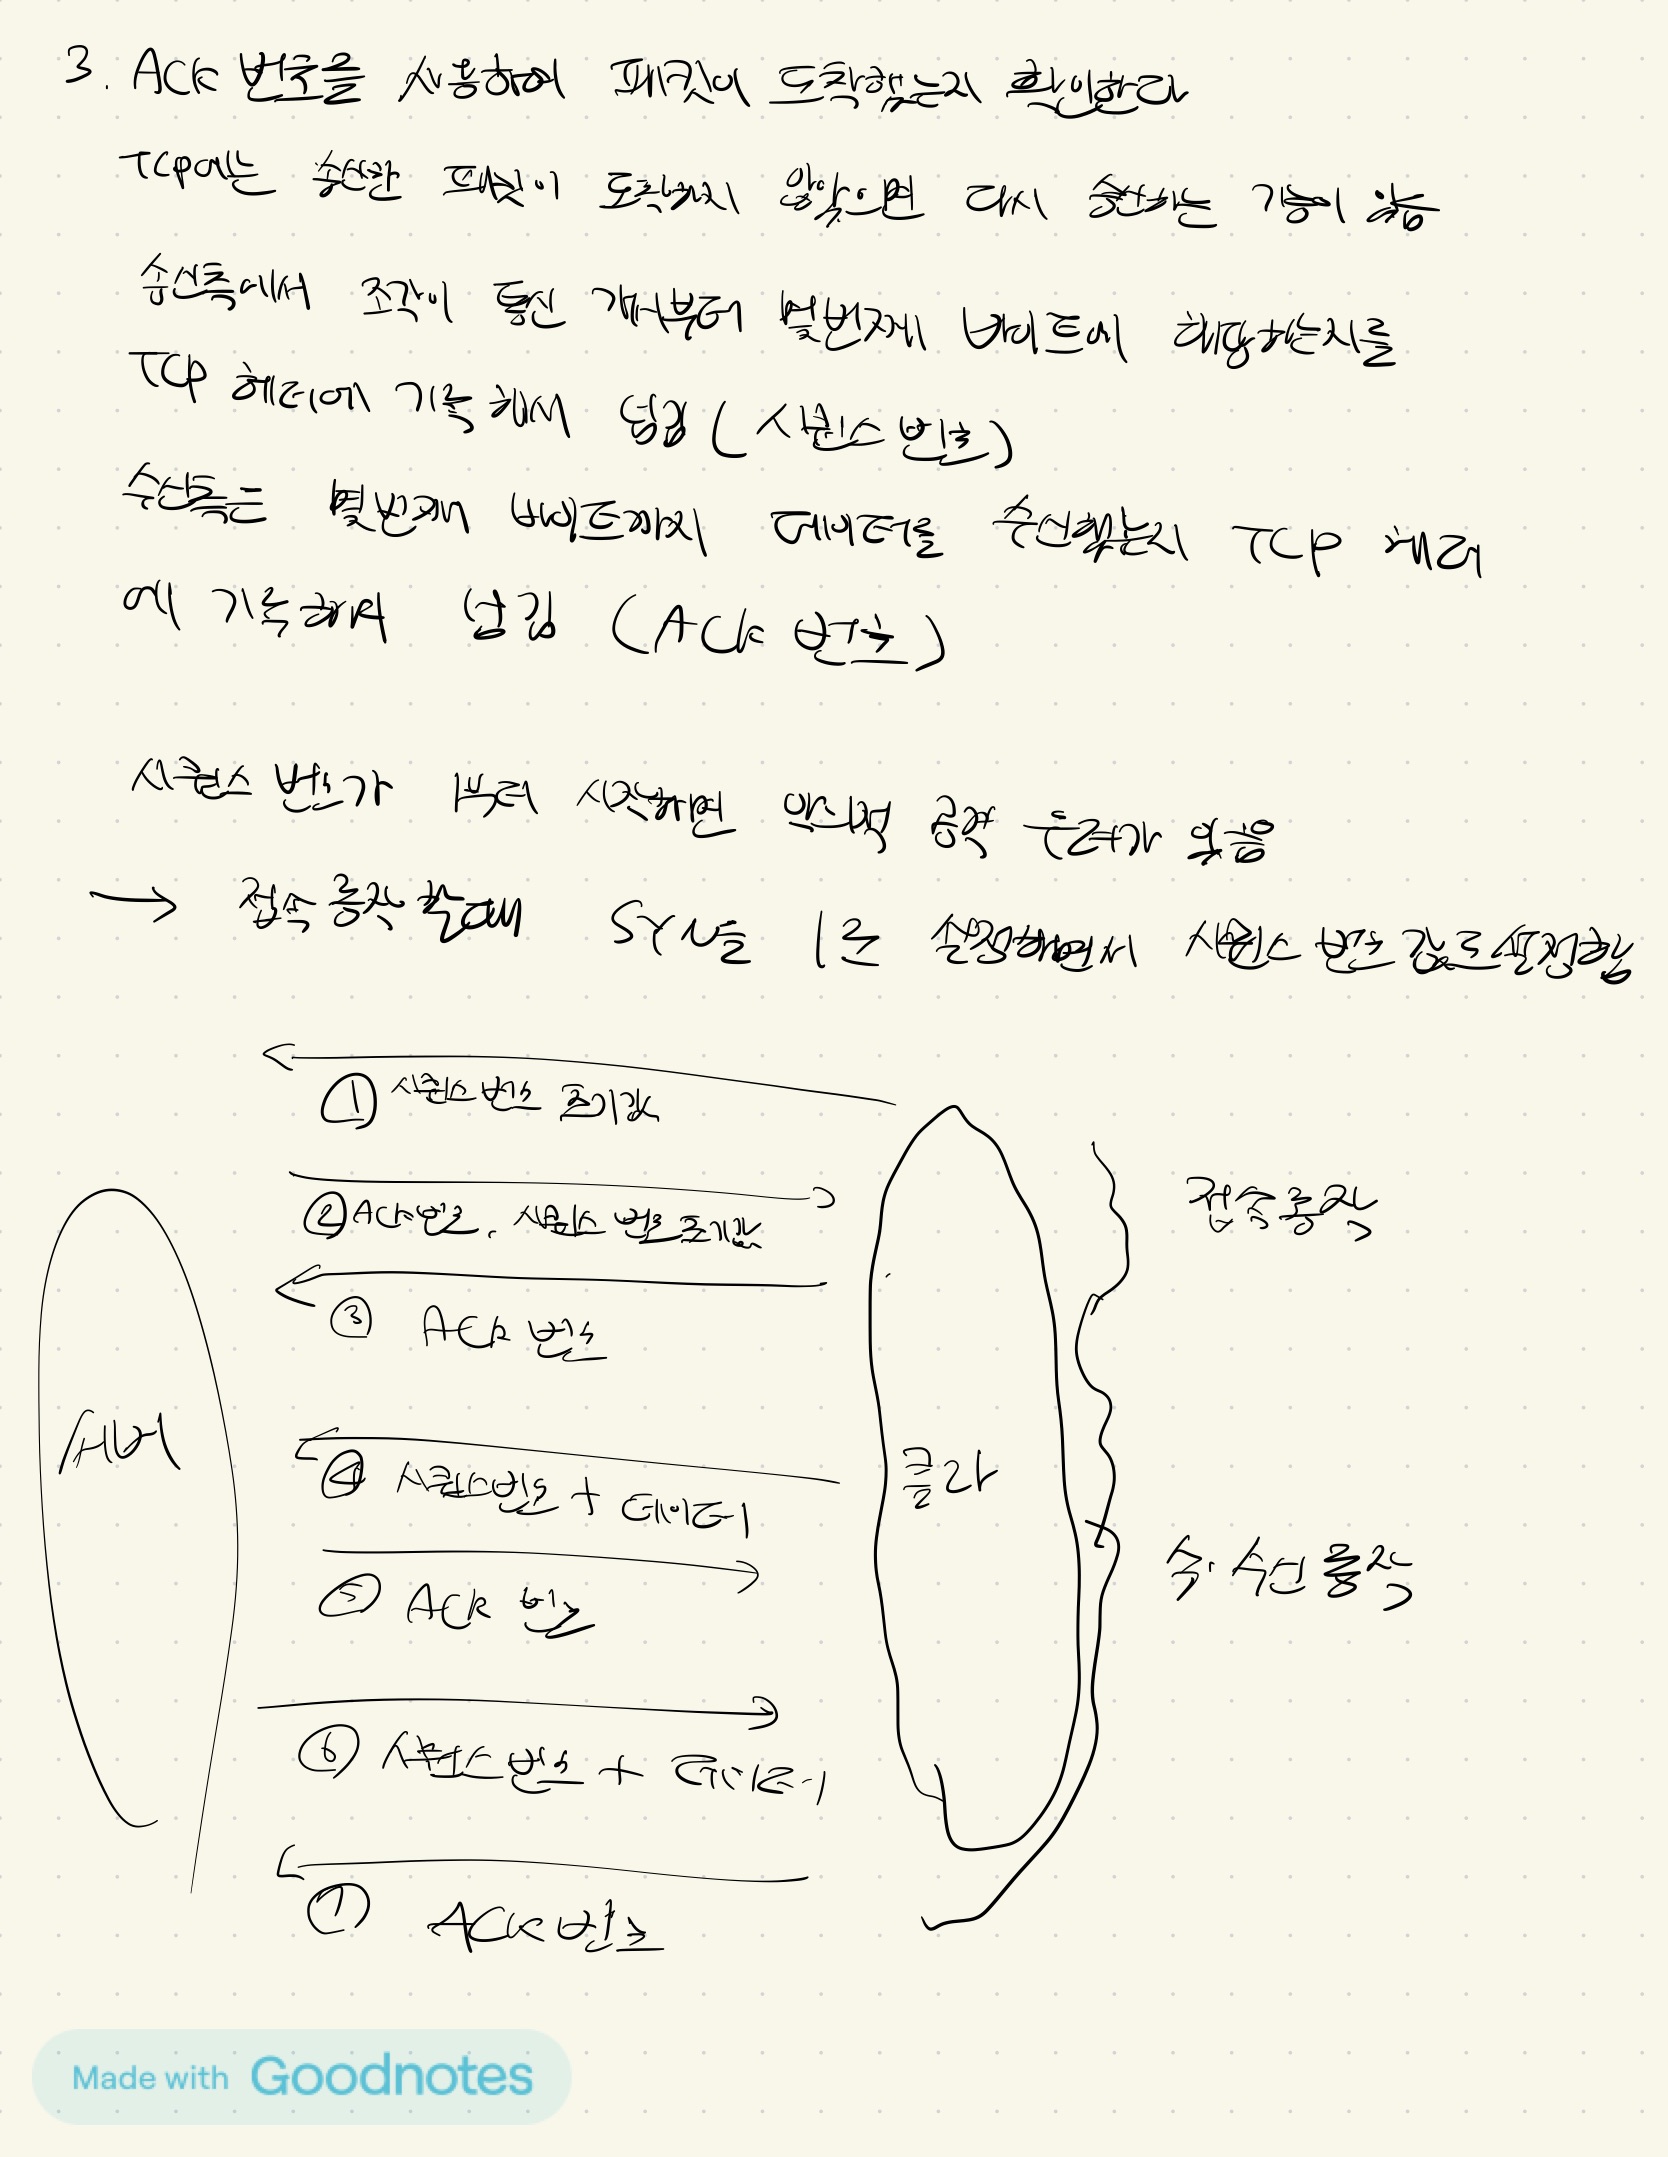 3. ACK 번호을 사용하여 패킷이 도착했는지 확인한다
TCP에는 송신한 패킷이 도착하지 않았으면 다시 송신하는 기능이 있음
송신측에서 조각이 통신 개시부터 몇번째 바이트에 해당하는지를
TCP 헤더에 기록해서 넘김 (시퀀스 번호)
수신측은 몇번째 바이트까지 데이터를 수신했는지 TCP 헤더
에 기록해서 넘김 (ACK 번호)
시퀀스 번호가 1부터 시작하면 악의적 공격 우려가 있음
→ 접속 동작 할때 SYN을 1로 설정하면서 시퀀스 번호 값도 설정함
① 시퀀스 번호 초기값
② ACK 번호, 시퀀스 번호 초기값
접속 동작
③ ACK 번호
서버
클라
④ 시퀀스 번호 + 데이터
⑤ ACK 번호
송·수신 동작
⑥ 시퀀스 번호 + 데이터
⑦ ACK 번호
Made with Goodnotes